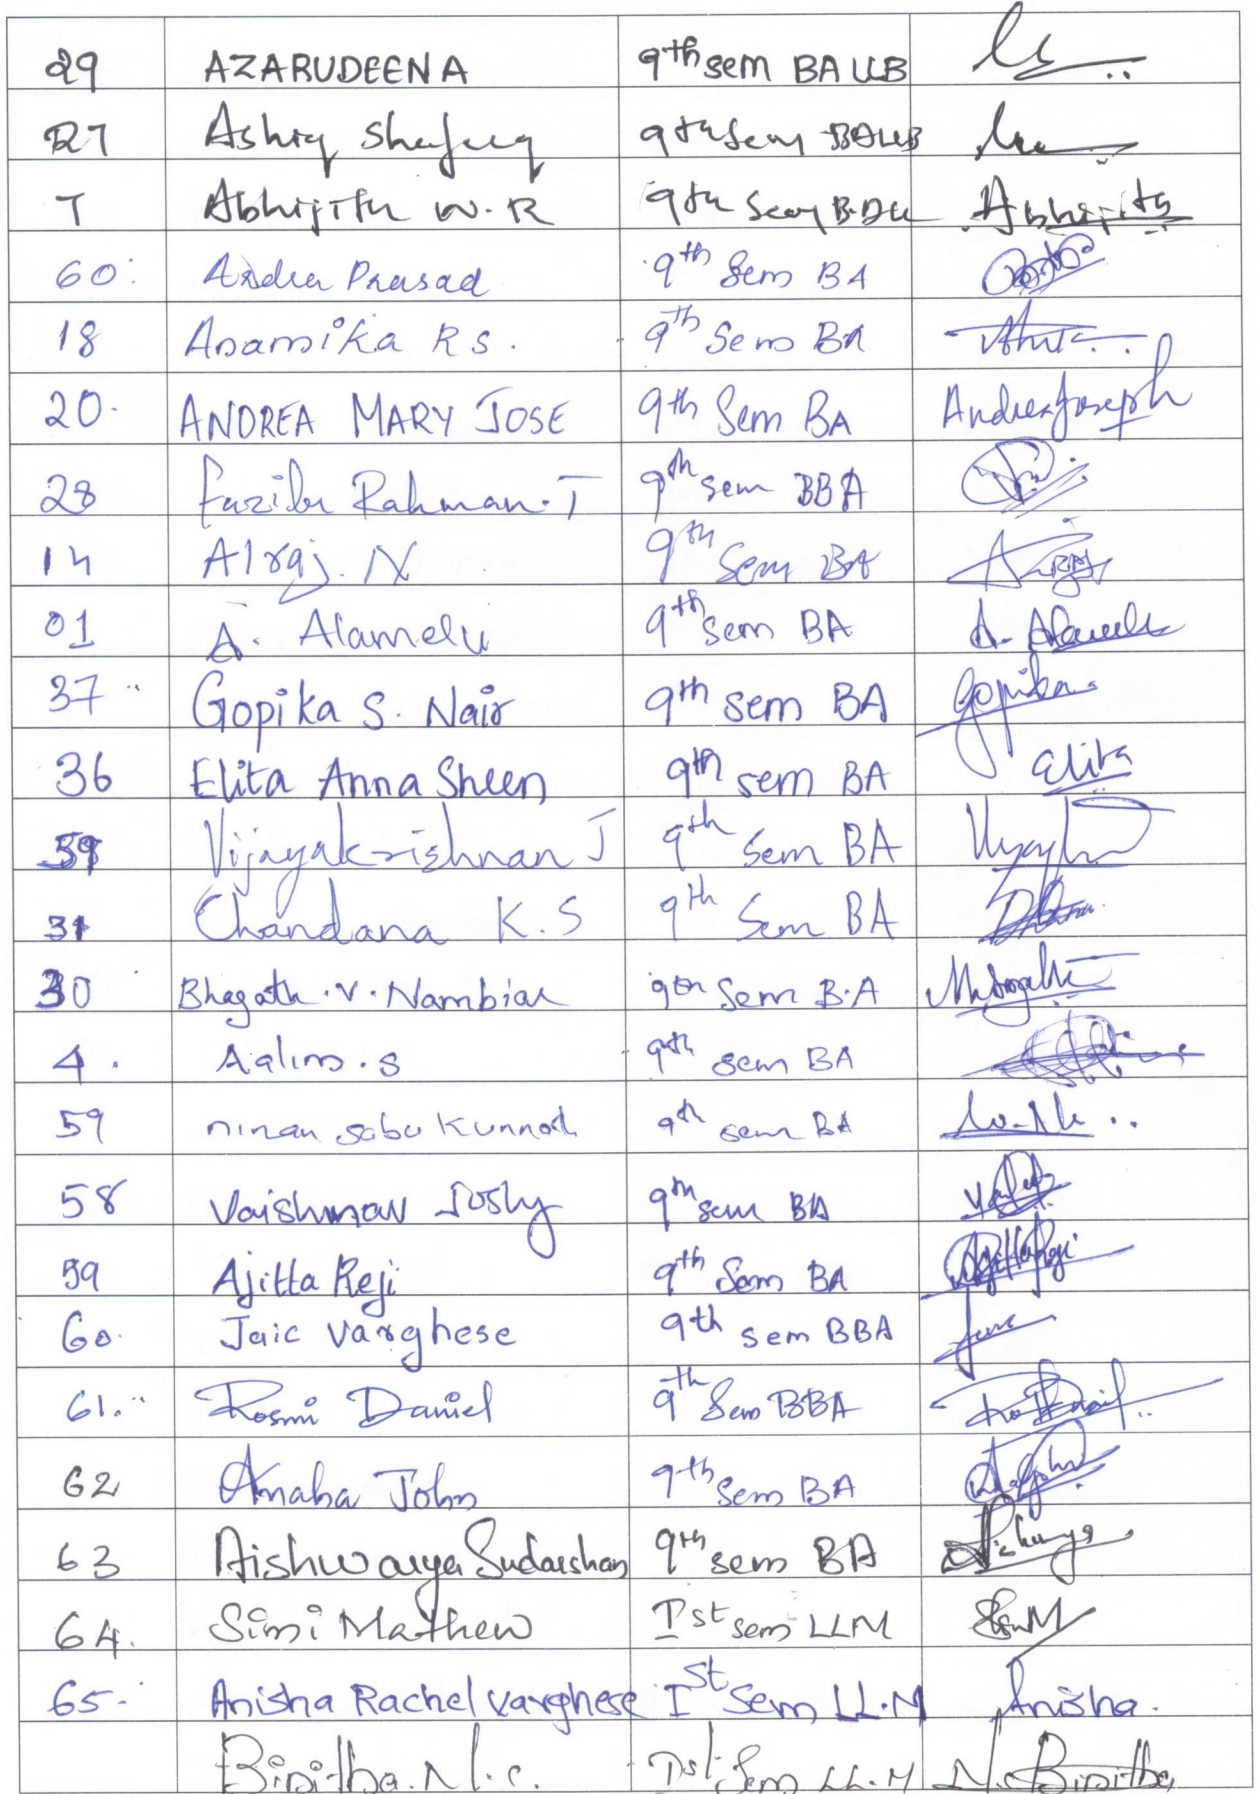 29 AZARUDEEN A 9th sem BA LLB
27 Ashiq Shafeeq 9th Sem BALLB
7 Abhijith W.R 9th Sem Abhijith
60. Prasad 9th Sem BA
18 Anamika R S. 9th Sem BA
20. ANDREA MARY JOSE 9th Sem BA Andrea Joseph
28 Rahman. T 9th sem BBA
14 Alraj. N 9th Sem BA
01 A. Alamelu 9th sem BA A. Alamelu
37 Gopika S. Nair 9th sem BA Gopika
36 Elita Anna Sheen 9th sem BA Elita
59 Vijayakrishnan J 9th Sem BA
31 Chandana K. S 9th Sem BA
30 Bhagath. V. Nambiar 9th Sem B.A
4. Aalim. S 9th sem BA
59 ninan sabu Kunnath 9th sem BA
58 Vaishnnav Joshy 9th sem BA
59 Ajitta Reji 9th Sem BA Ajitta Reji
60. Jaic Varghese 9th sem BBA
61. Rosmi Daniel 9th Sem BBA
62 Anaha John 9th Sem BA
63 Aishwarya Sudarshan 9th sem BA
64. Simi Mathew Ist sem LLM
65. Anisha Rachel Varghese Ist Sem LL.M Anisha.
Binitha. N. C. Ist Sem LL.M N. C. Binitha